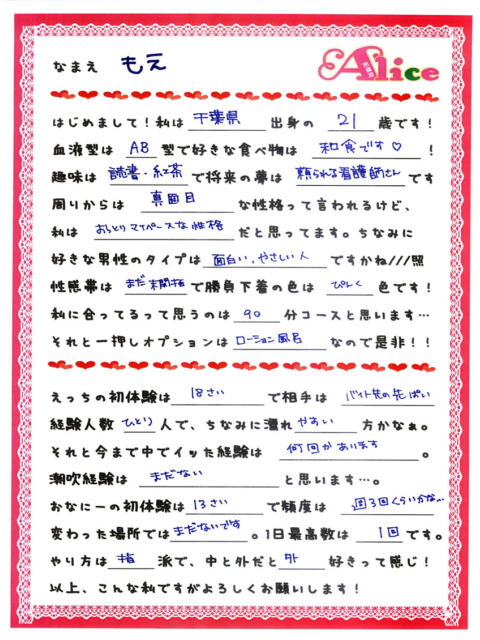 なまえ もえ Alice
はじめまして！私は 千葉県 出身の 21 歳です！
血液型は AB 型で好きな食べ物は 和食です♡ ！
趣味は 読書・紅茶 で将来の夢は 頼られる看護師さん です
周りからは 真面目 な性格って言われるけど、
私は おっとりマイペースな性格 だと思ってます。ちなみに
好きな男性のタイプは 面白い、やさしい人 ですかね///照
性感帯は まだ未開拓 で勝負下着の色は ぴんく 色です！
私に合ってるって思うのは 90 分コースと思います…
それと一押しオプションは ローション風呂 なので是非！！
えっちの初体験は 18さい で相手は バイト先の先ぱい
経験人数 ひとり 人で、ちなみに濡れ やすい 方かなぁ。
それと今まで中でイッた経験は 何回かあります 。
潮吹経験は まだない と思います…。
変わった場所では まだないです 。1日最高数は 1回 です。
やり方は 指 派で、中と外だと 外 好きって感じ！
以上、こんな私ですがよろしくお願いします！